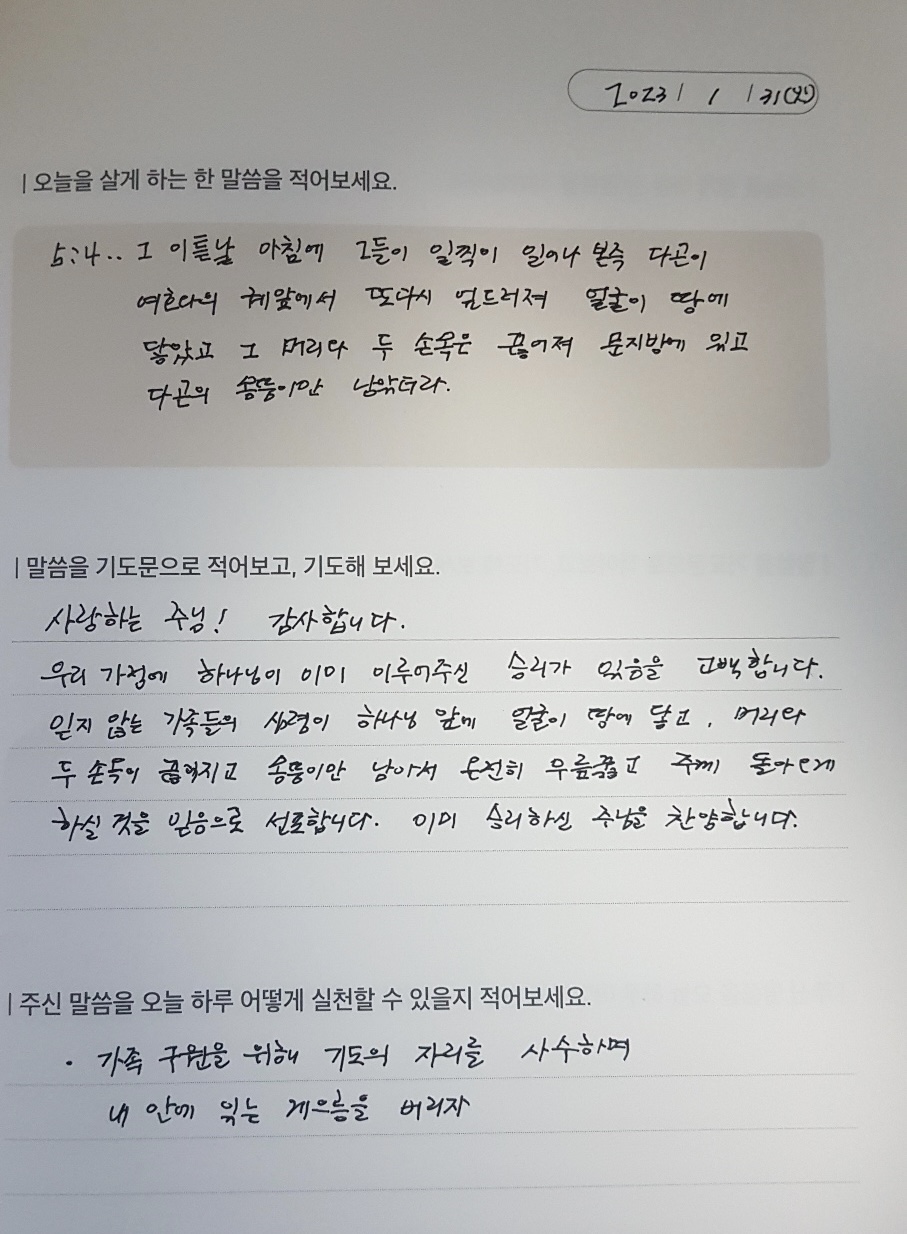 2023 / 1 / 31(화)
| 오늘을 살게 하는 한 말씀을 적어보세요.
5:4.. 그 이튿날 아침에 그들이 일찍이 일어나 본즉 다곤이
여호와의 궤앞에서 또다시 엎드러져 얼굴이 땅에
닿았고 그 머리와 두 손목은 끊어져 문지방에 있고
다곤의 몸뚱이만 남았더라.
| 말씀을 기도문으로 적어보고, 기도해 보세요.
사랑하는 주님! 감사합니다.
우리 가정에 하나님이 이미 이루어주신 승리가 있음을 고백합니다.
믿지 않는 가족들의 심령이 하나님 앞에 얼굴이 땅에 닿고, 머리와
두 손목이 끊어지고 몸뚱이만 남아서 온전히 무릎꿇고 주께 돌아오게
하실 것을 믿음으로 선포합니다. 이미 승리하신 주님을 찬양합니다.
| 주신 말씀을 오늘 하루 어떻게 실천할 수 있을지 적어보세요.
· 가족 구원을 위해 기도의 자리를 사수하며
내 안에 있는 게으름을 버리자